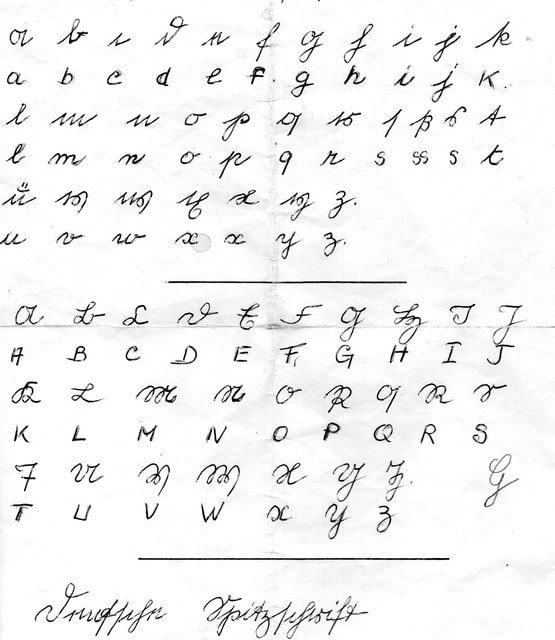 a b c d e f g h i j k
a b c d e F. g h i j K.
l m n o p q r s ß s t
l m n o p q r s ss s t
ü v w x x y z.
u v w x x y z.
A B C D E F G H I J
A B C D E F, G H I J
K L M N O P Q R S
K L M N O P Q R S
T U V W X Y Z. G
T U V W X Y Z
Deutsche Spitzschrift